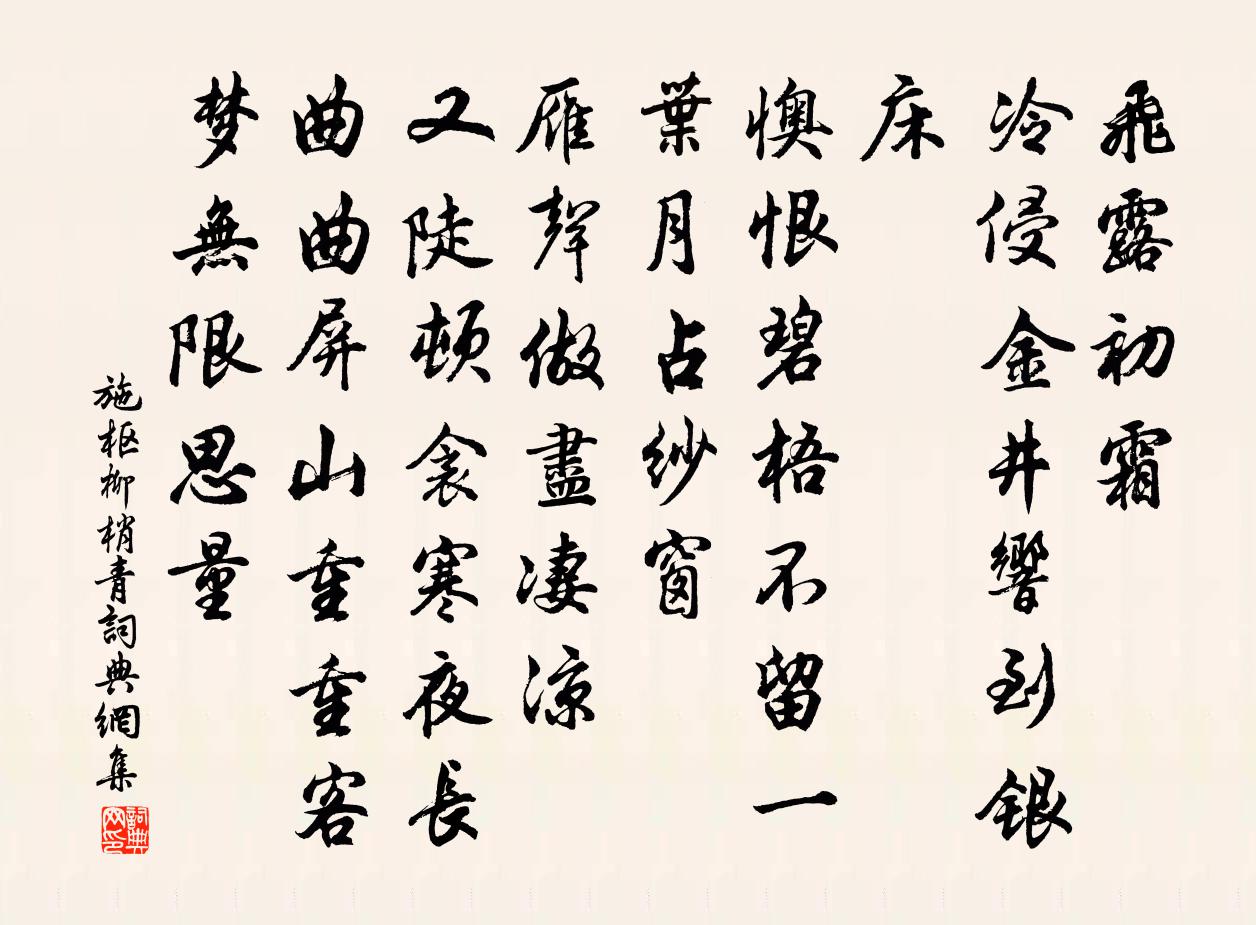 飛露初霜
冷侵金井響到銀
床
懊恨碧梧不留一
葉月占紗窗
雁聲做盡凄涼
又陡頓衾寒夜長
曲曲屏山重重客
梦無限思量
施枢柳梢青詞典網集
詞典
网印